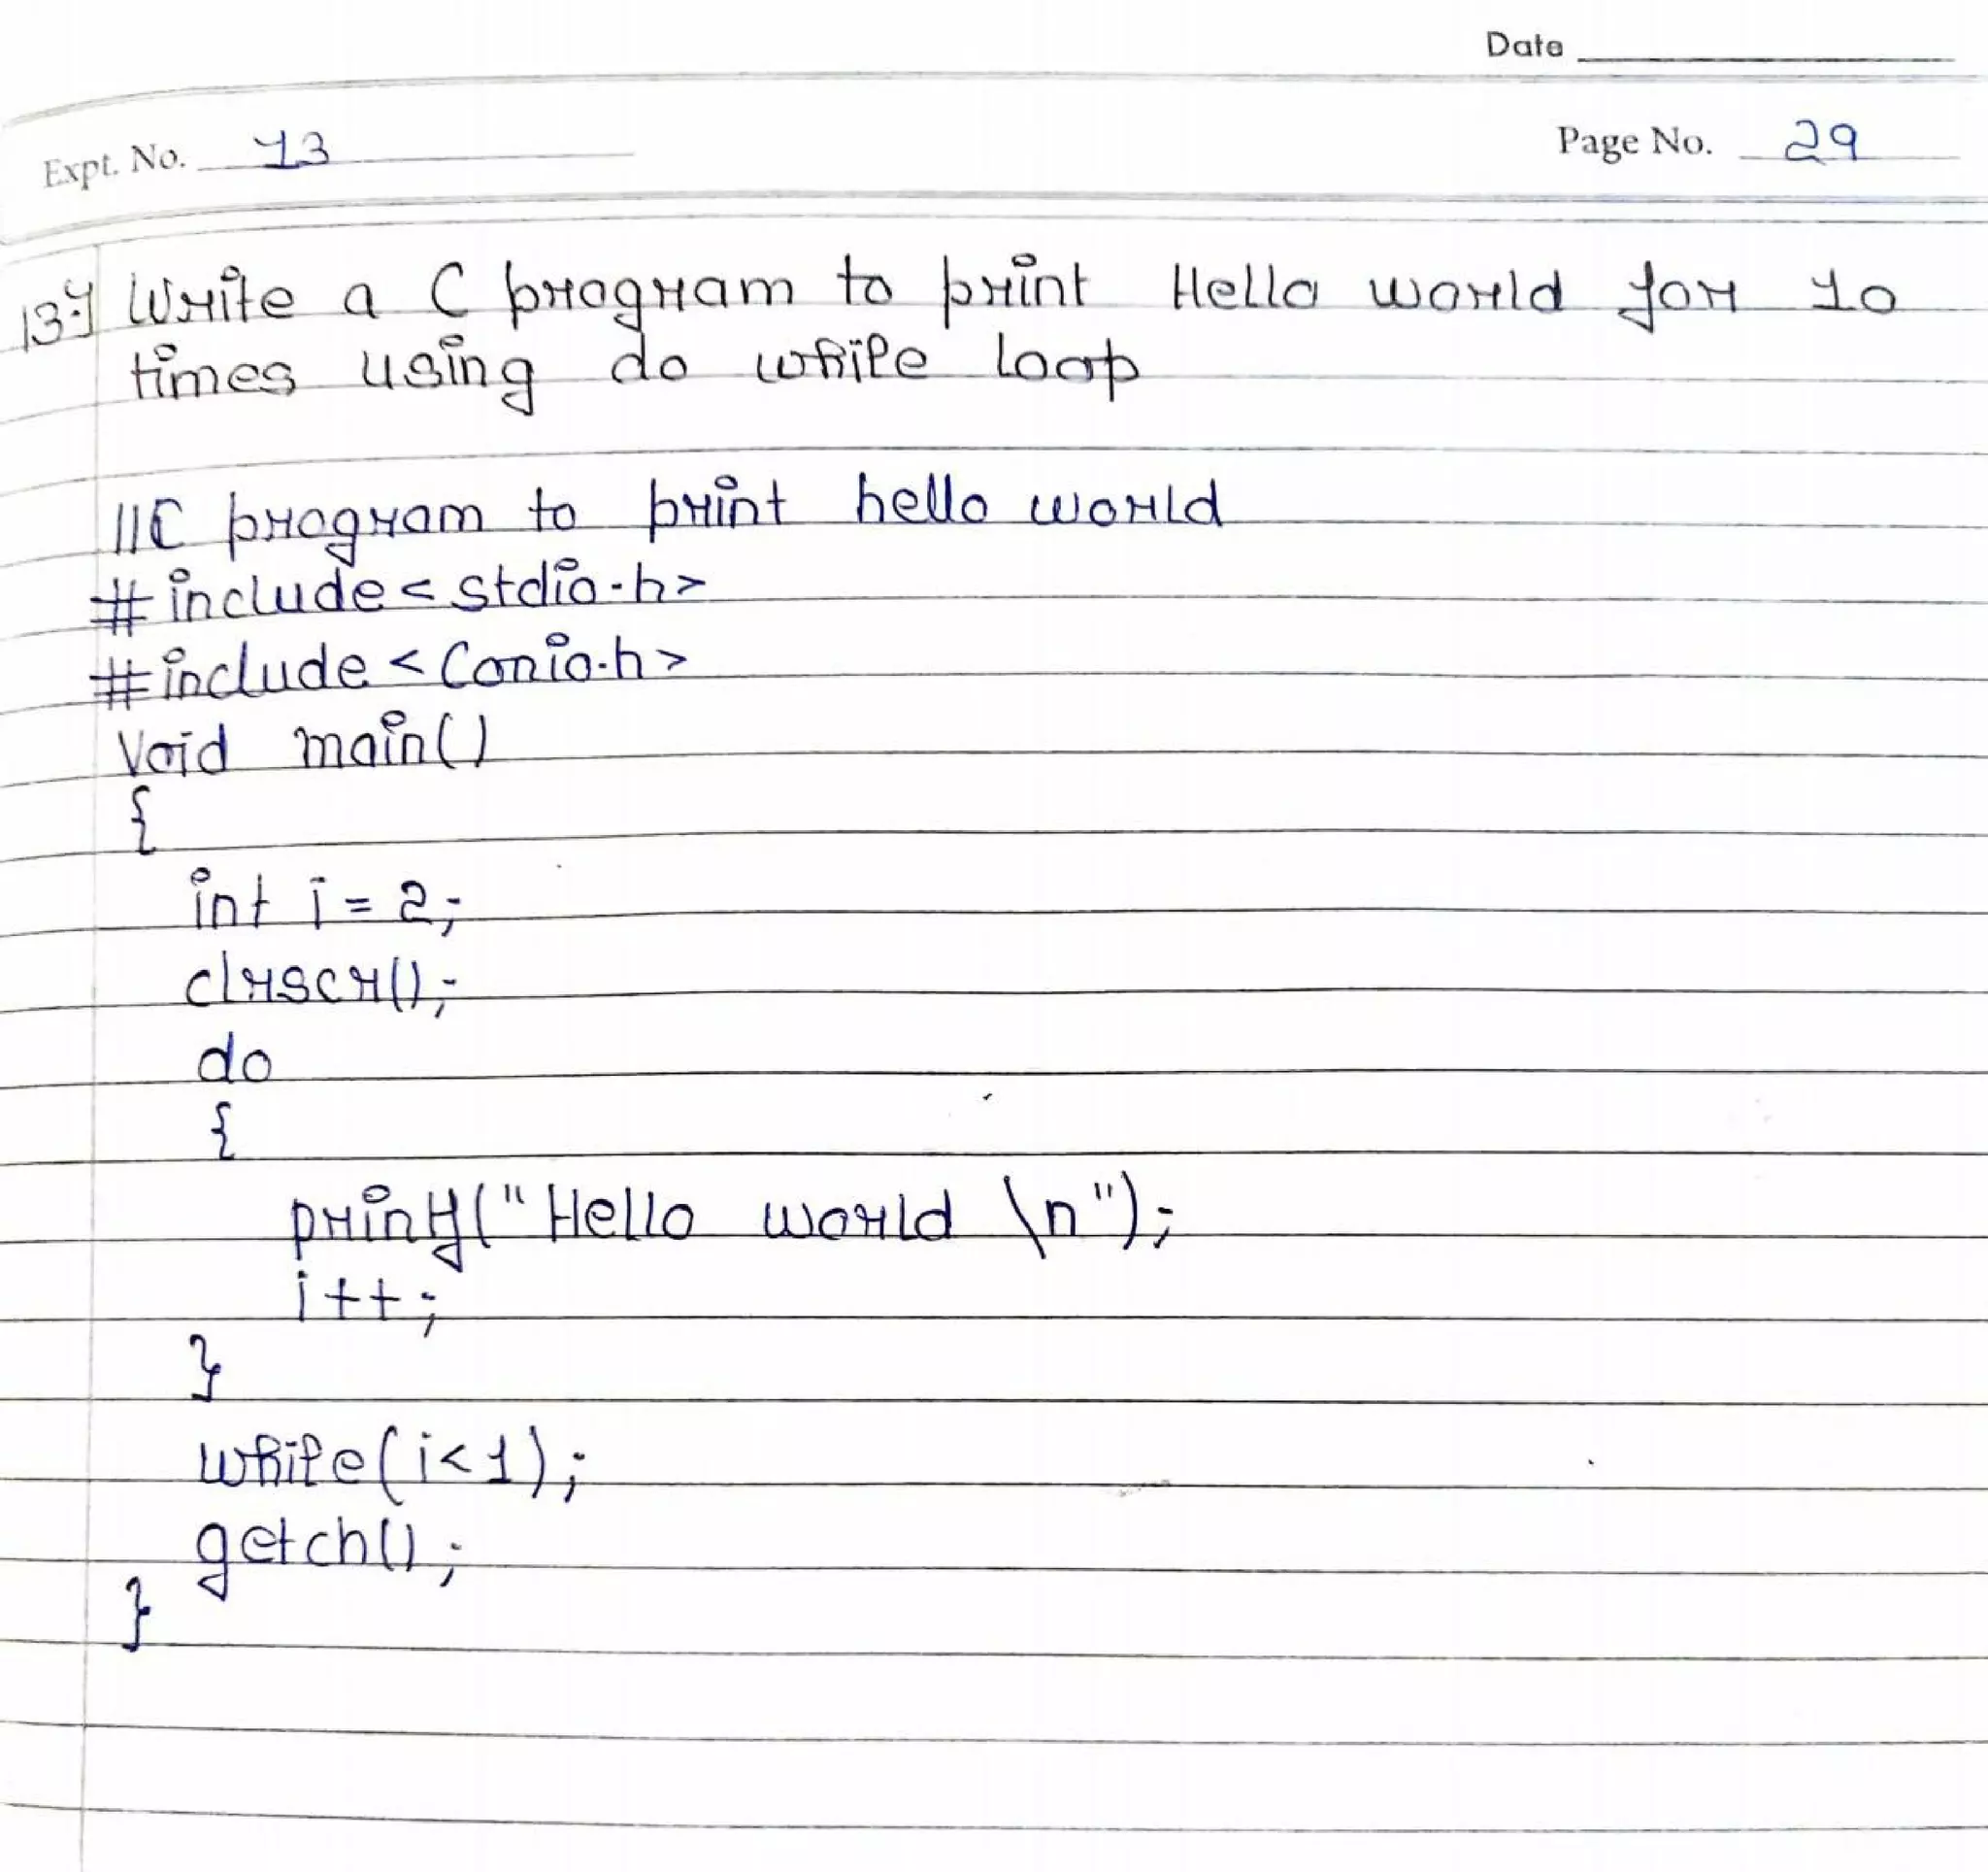 Date
Expt. No. 13
Page No. 29
13.) Write a C program to print Hello world for 10
times using do while loop
//C program to print hello world
#include<stdio.h>
#include<Conio.h>
Void main()
{
int i = 2;
clrscr();
do
{
printf("Hello world \n");
i++;
}
while(i<1);
getch();
}